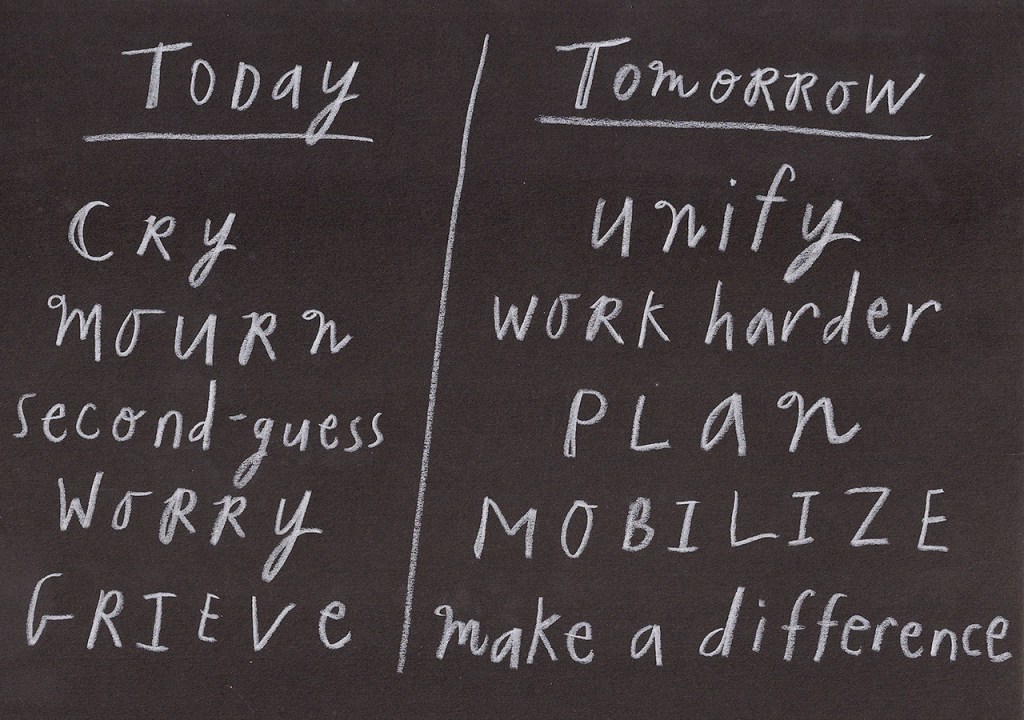 Today
Cry
mourn
second-guess
Worry
GRIEVe
Tomorrow
unify
work harder
PLan
MOBILIZE
make a difference